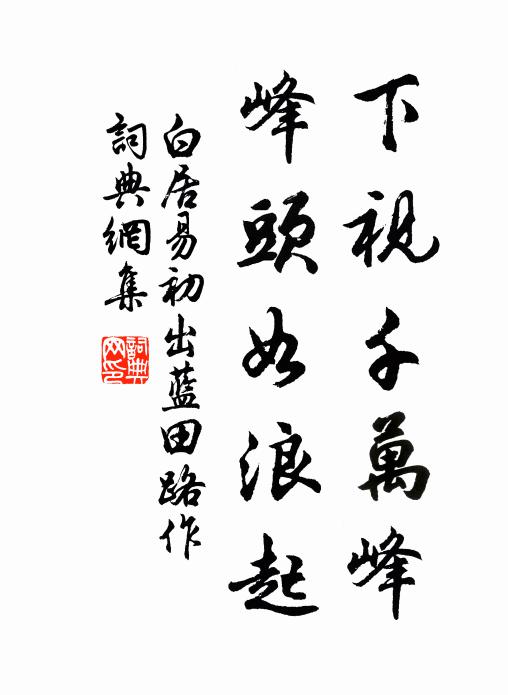 下視千萬峰
峰頭如浪起
白居易初出藍田路作
詞典網集
詞典网印